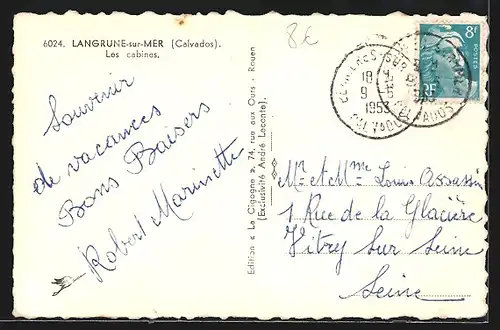 6024. LANGRUNE-sur-MER (Calvados).
Les cabines.
8€
8f
POSTES
RF
18
9
1953
CALVADOS
Souvenir
de vacances
Bons Baisers
Robert Marinette
Edition « La Cigogne », 74, rue aux Ours - Rouen
(Exclusivité André Leconte).
Mr et Mme Louis Assassin
1 Rue de la Glacière
Vitry Sur Seine
Seine